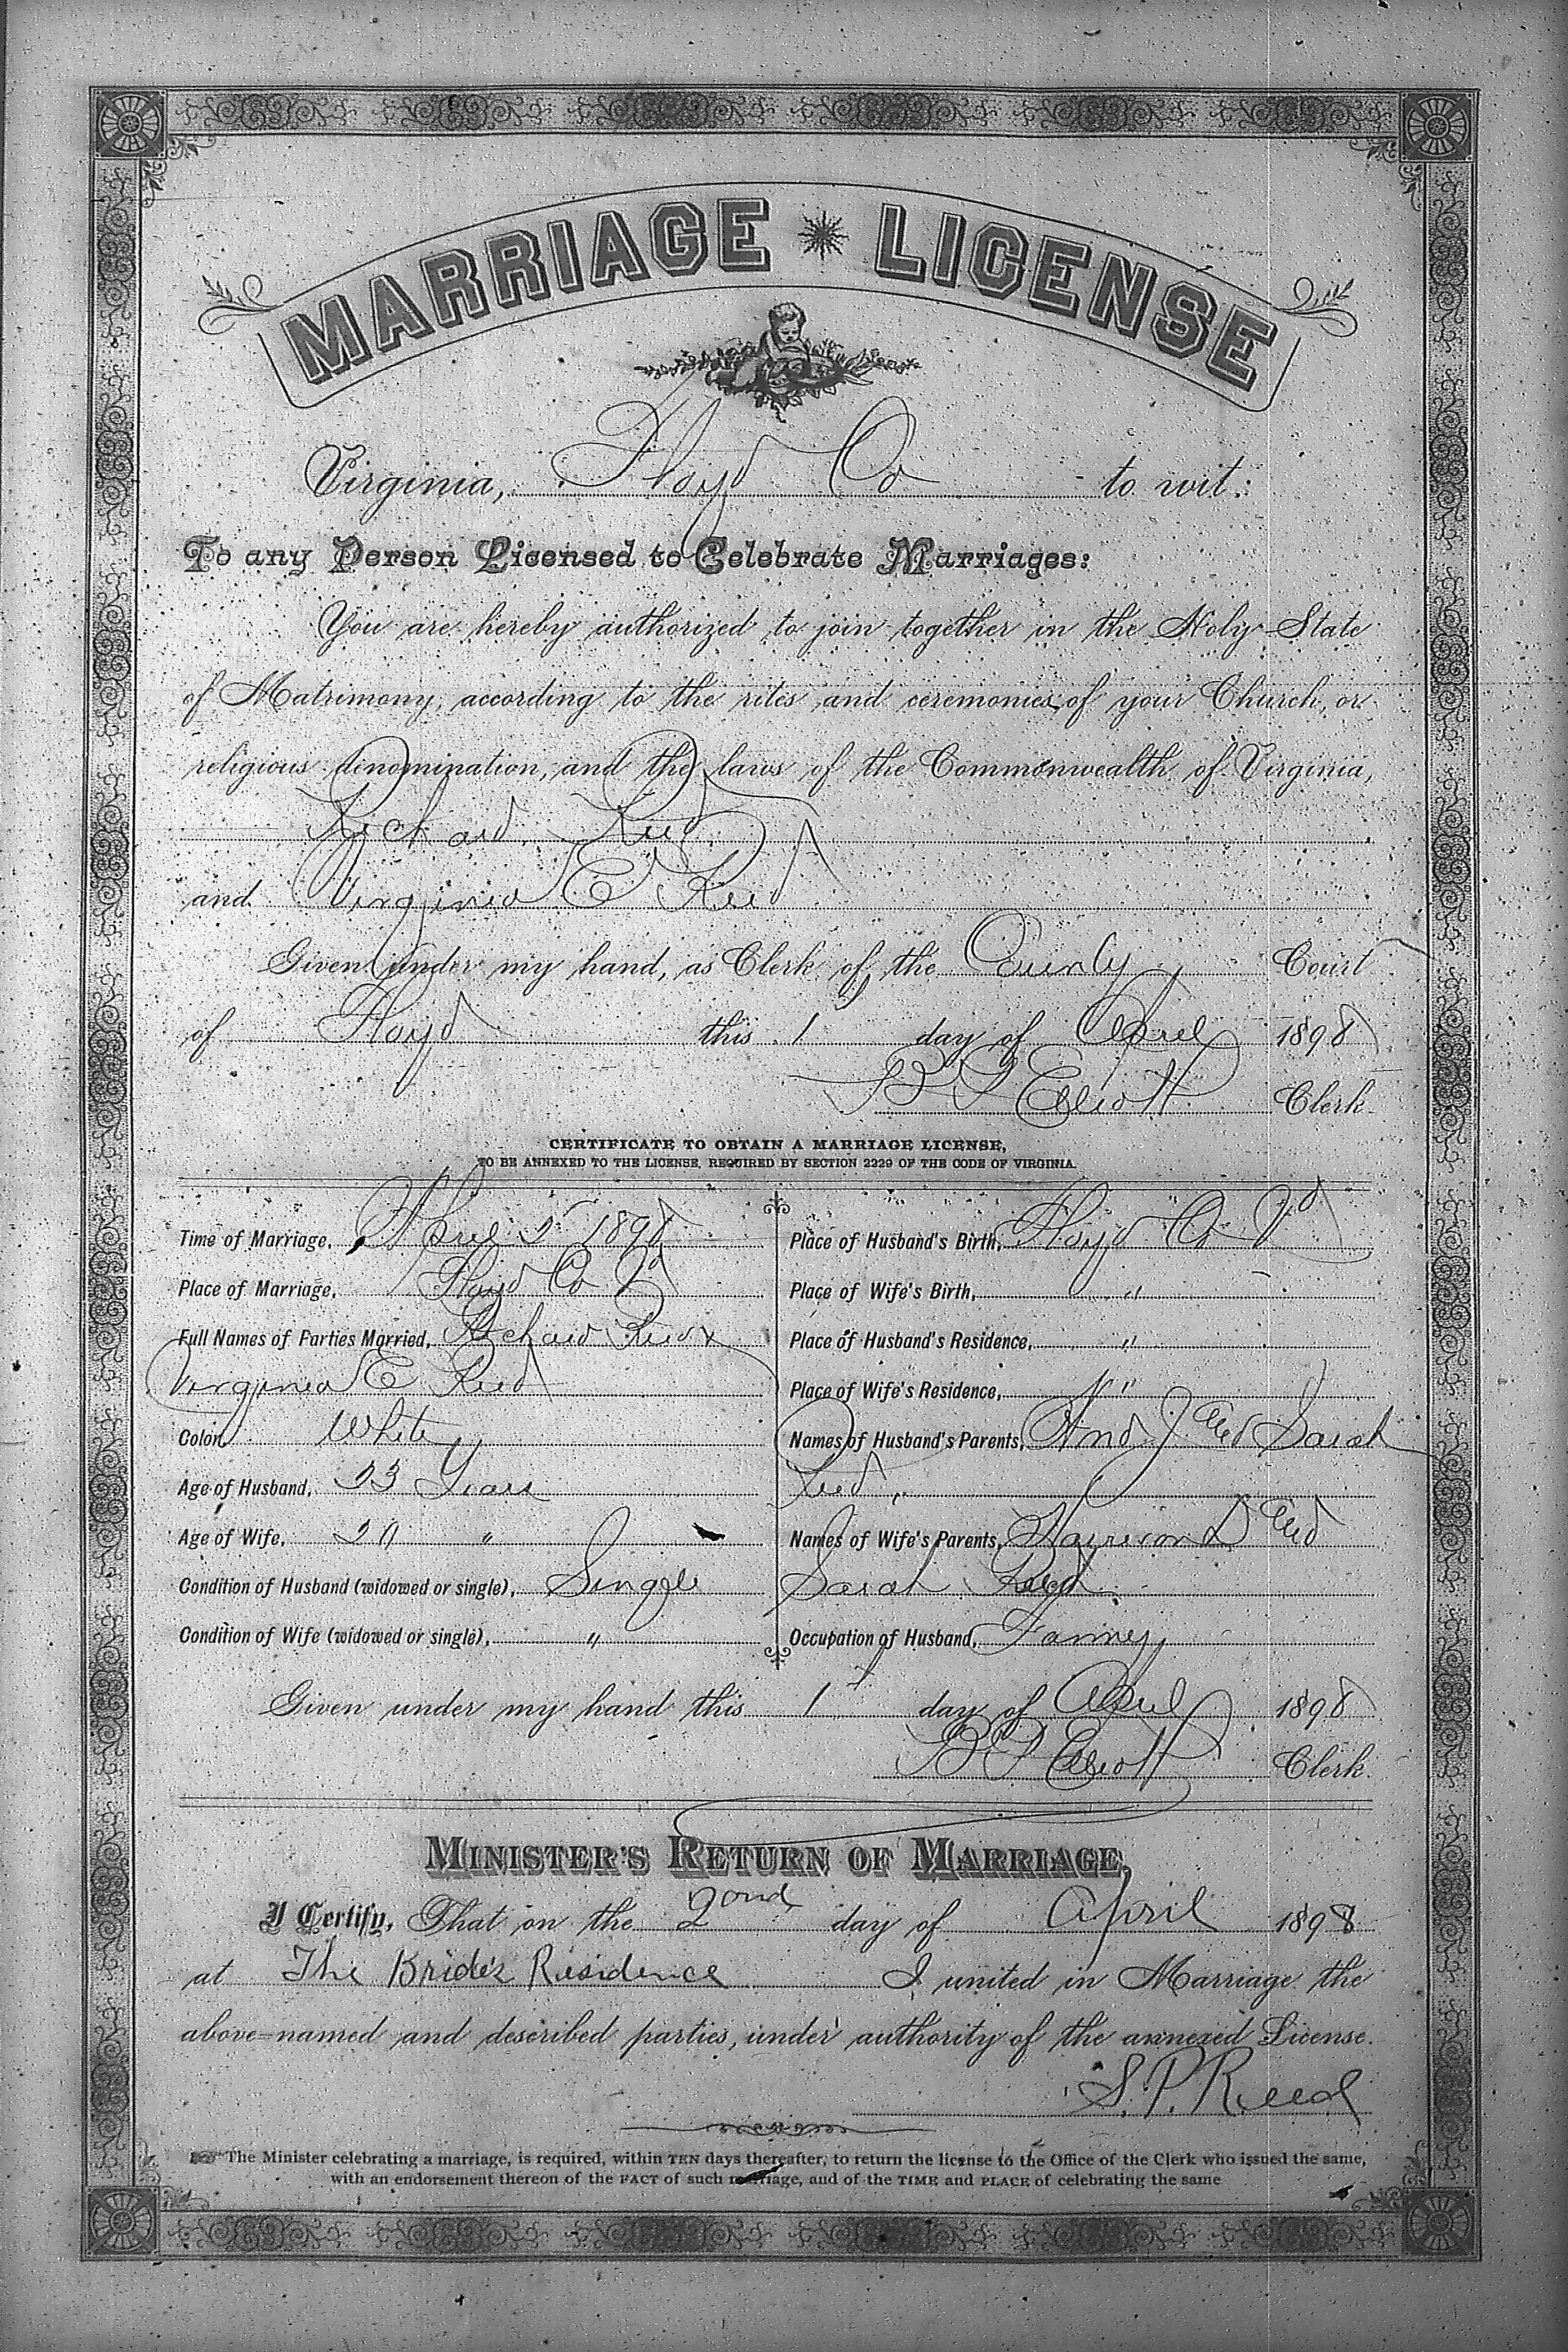 MARRIAGE LICENSE
Virginia, Floyd Co to wit:
To any Person Licensed to Celebrate Marriages:
You are hereby authorized to join together in the Holy State
of Matrimony, according to the rites and ceremonies of your Church, or
religious denomination, and the laws of the Commonwealth of Virginia,
Richard Reed
and Virginia E Reed
Given under my hand, as Clerk of the County Court
of Floyd this 1 day of April 1898
Elliott Clerk.
CERTIFICATE TO OBTAIN A MARRIAGE LICENSE,
TO BE ANNEXED TO THE LICENSE, REQUIRED BY SECTION 2229 OF THE CODE OF VIRGINIA.
Time of Marriage, April 2 1898
Place of Marriage, Floyd Co Va
Full Names of Parties Married, Richard Reed &
Virginia E Reed
Color White
Age of Husband, 23 Years
Age of Wife, "
Condition of Husband (widowed or single), Single
Condition of Wife (widowed or single), "
Place of Husband's Birth, Floyd Co Va
Place of Wife's Birth, "
Place of Husband's Residence, "
Place of Wife's Residence, "
Names of Husband's Parents, And J and Sarah
Reed
Names of Wife's Parents, Harrison D and
Sarah Reed
Occupation of Husband, Farmer
Given under my hand this 1 day of April 1898
Elliott Clerk.
MINISTER'S RETURN OF MARRIAGE,
I Certify, That on the 2ond day of April 1898
at The Bride's Residence I united in Marriage the
above-named and described parties, under authority of the annexed License.
S. P. Reed
The Minister celebrating a marriage, is required, within TEN days thereafter, to return the license to the Office of the Clerk who issued the same,
with an endorsement thereon of the FACT of such marriage, and of the TIME and PLACE of celebrating the same